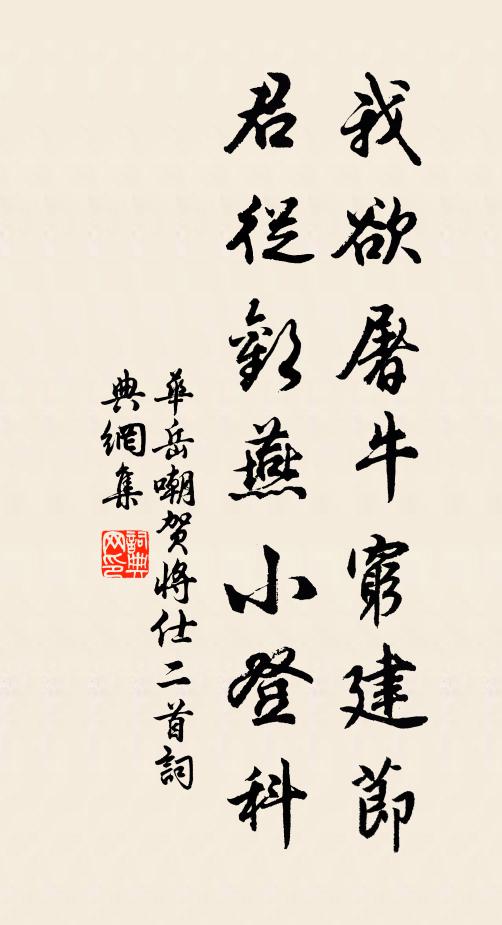 我欲屠牛窮建節
君從歡燕小登科
華岳嘲贺將仕二首詞
典網集
詞典
网印